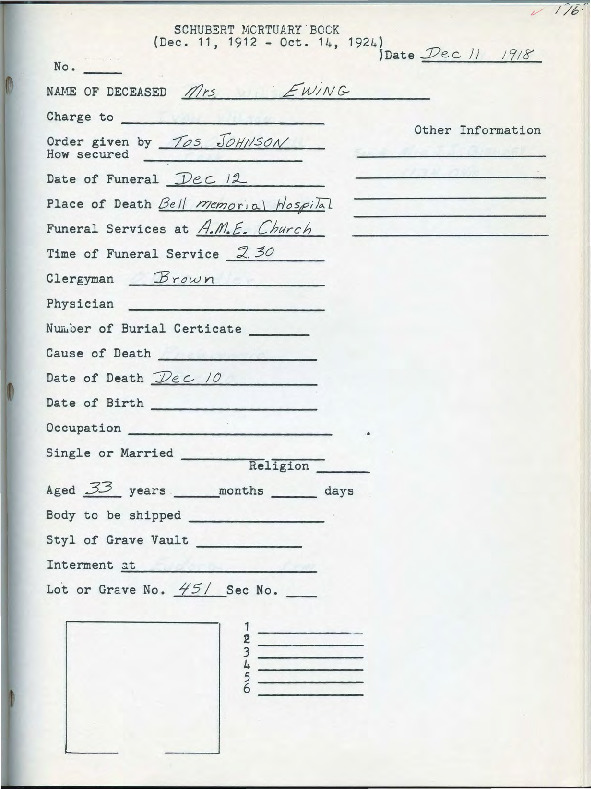 176
SCHUBERT MORTUARY BOOK
(Dec. 11, 1912 - Oct. 14, 1924)
)Date Dec 11 1918
No.
NAME OF DECEASED Mrs EWING
Charge to
Other Information
Order given by Tos JOHNSON
How secured
Date of Funeral Dec 12
Place of Death Bell memorial Hospital
Funeral Services at A.M.E. Church
Time of Funeral Service 2.30
Clergyman Brown
Physician
Number of Burial Certicate
Cause of Death
Date of Death Dec 10
Date of Birth
Occupation
Single or Married
Religion
Aged 33 years months days
Body to be shipped
Styl of Grave Vault
Interment at
Lot or Grave No. 451 Sec No.
1
2
3
4
5
6